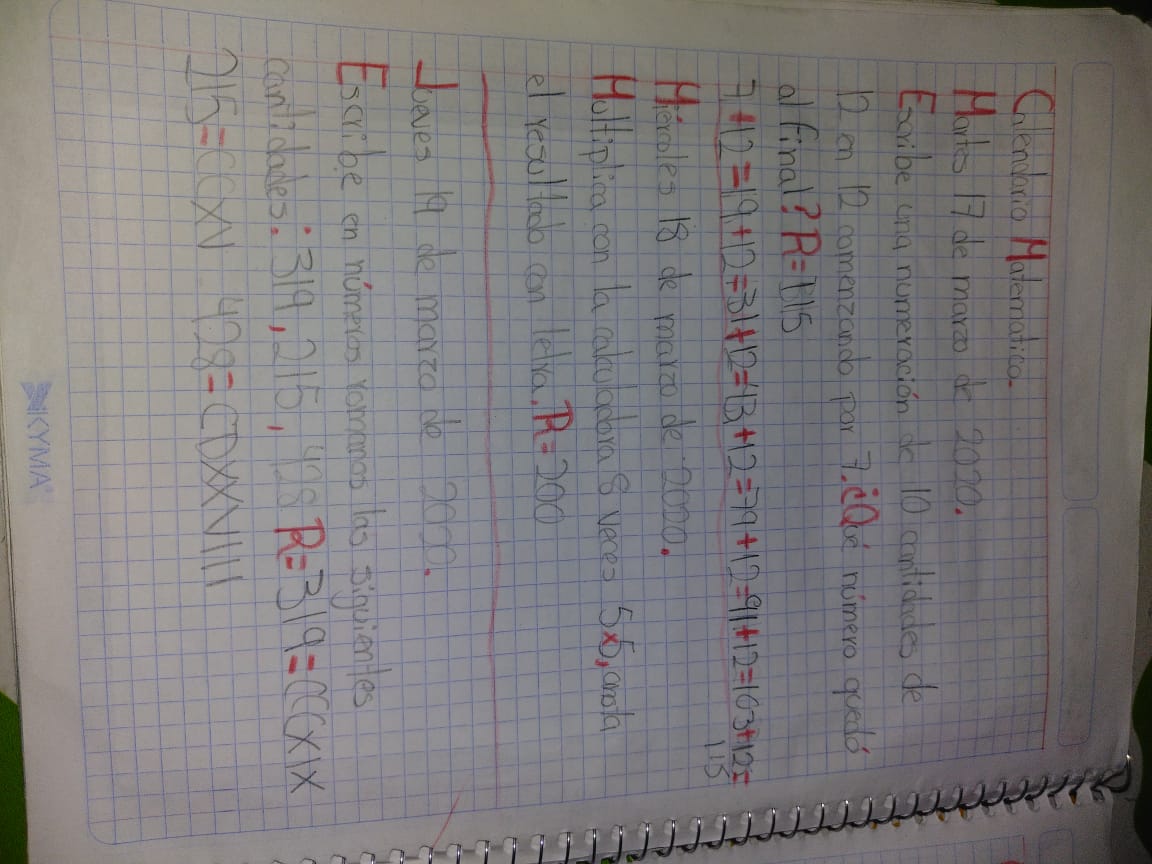 Calendario Matematico.
Martes 17 de marzo de 2020.
Escribe una numeración de 10 cantidades de
12 en 12 comenzando por 7, ¿Qué número quedó
al final? R=115
7+12=19+12=31+12=43+12=79+12=91+12=103+12=
115
Miércoles 18 de marzo de 2020.
Multiplica con la calculadora 8 veces 5x5, anota
el resultado con letra. R=200
Jueves 19 de marzo de 2020.
Escribe en números romanos las siguientes
cantidades: 319, 215, 428 R=319=CCCXIX
215=CCXV 428=CDXXVIII
KYMA